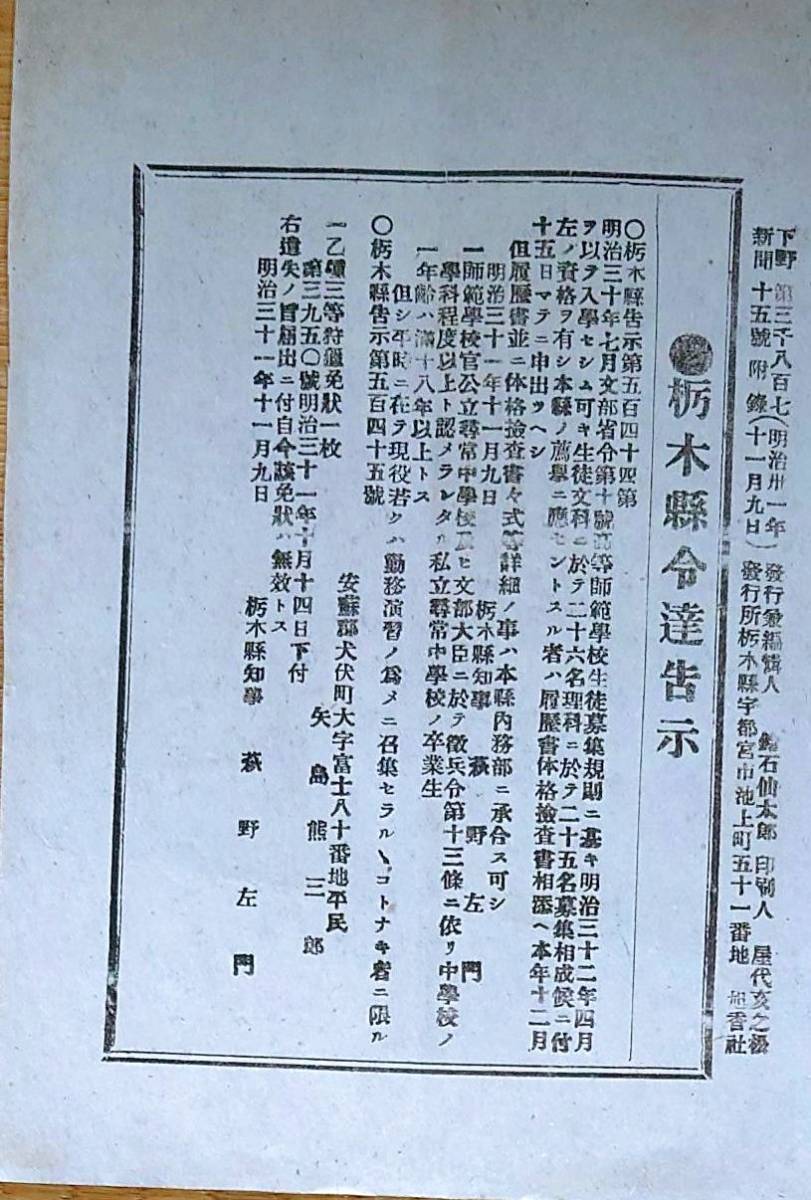 下野新聞 第三千八百七十五號附錄 (明治卅一年十一月九日)
發行兼編輯人 石仙太郎 印刷人 屋代亥之松
發行所栃木縣宇都宮市池上町五十一番地 香社
栃木縣令達告示
○栃木縣告示第五百四十四第
明治三十年七月文部省令第十號高等師範學校生徒募集規則ニ基キ明治三十二年四月
ヲ以テ入學セシム可キ生徒文科ニ於テ二十六名理科ニ於テ二十五名募集相成候ニ付
左ノ資格ヲ有シ本縣ノ薦擧ニ應セントスル者ハ履歷書体格檢査書相添ヘ本年十二月
十五日マテニ申出ツヘシ
但履歷書並ニ体格檢査書々式等詳細ノ事ハ本縣內務部ニ承合ス可シ
明治三十一年十一月九日
栃木縣知事 萩野左門
一師範學校官公立尋常中學校及ヒ文部大臣ニ於テ徵兵令第十三條ニ依リ中學校ノ
學科程度以上ト認メラレタル私立尋常中學校ノ卒業生
一年齡ハ滿十八年以上トス
但シ平時ニ在テ現役若クハ勤務演習ノ爲メニ召集セラルヽコトナキ者ニ限ル
○栃木縣告示第五百四十五號
安蘇郡犬伏町大字富士八十番地平民
矢島熊三郎
一乙種三等狩獵免狀一枚
第三九五〇號明治三十一年十月十四日下付
右遺失ノ旨屆出ニ付自今該免狀ハ無效トス
明治三十一年十一月九日
栃木縣知事 萩野左門